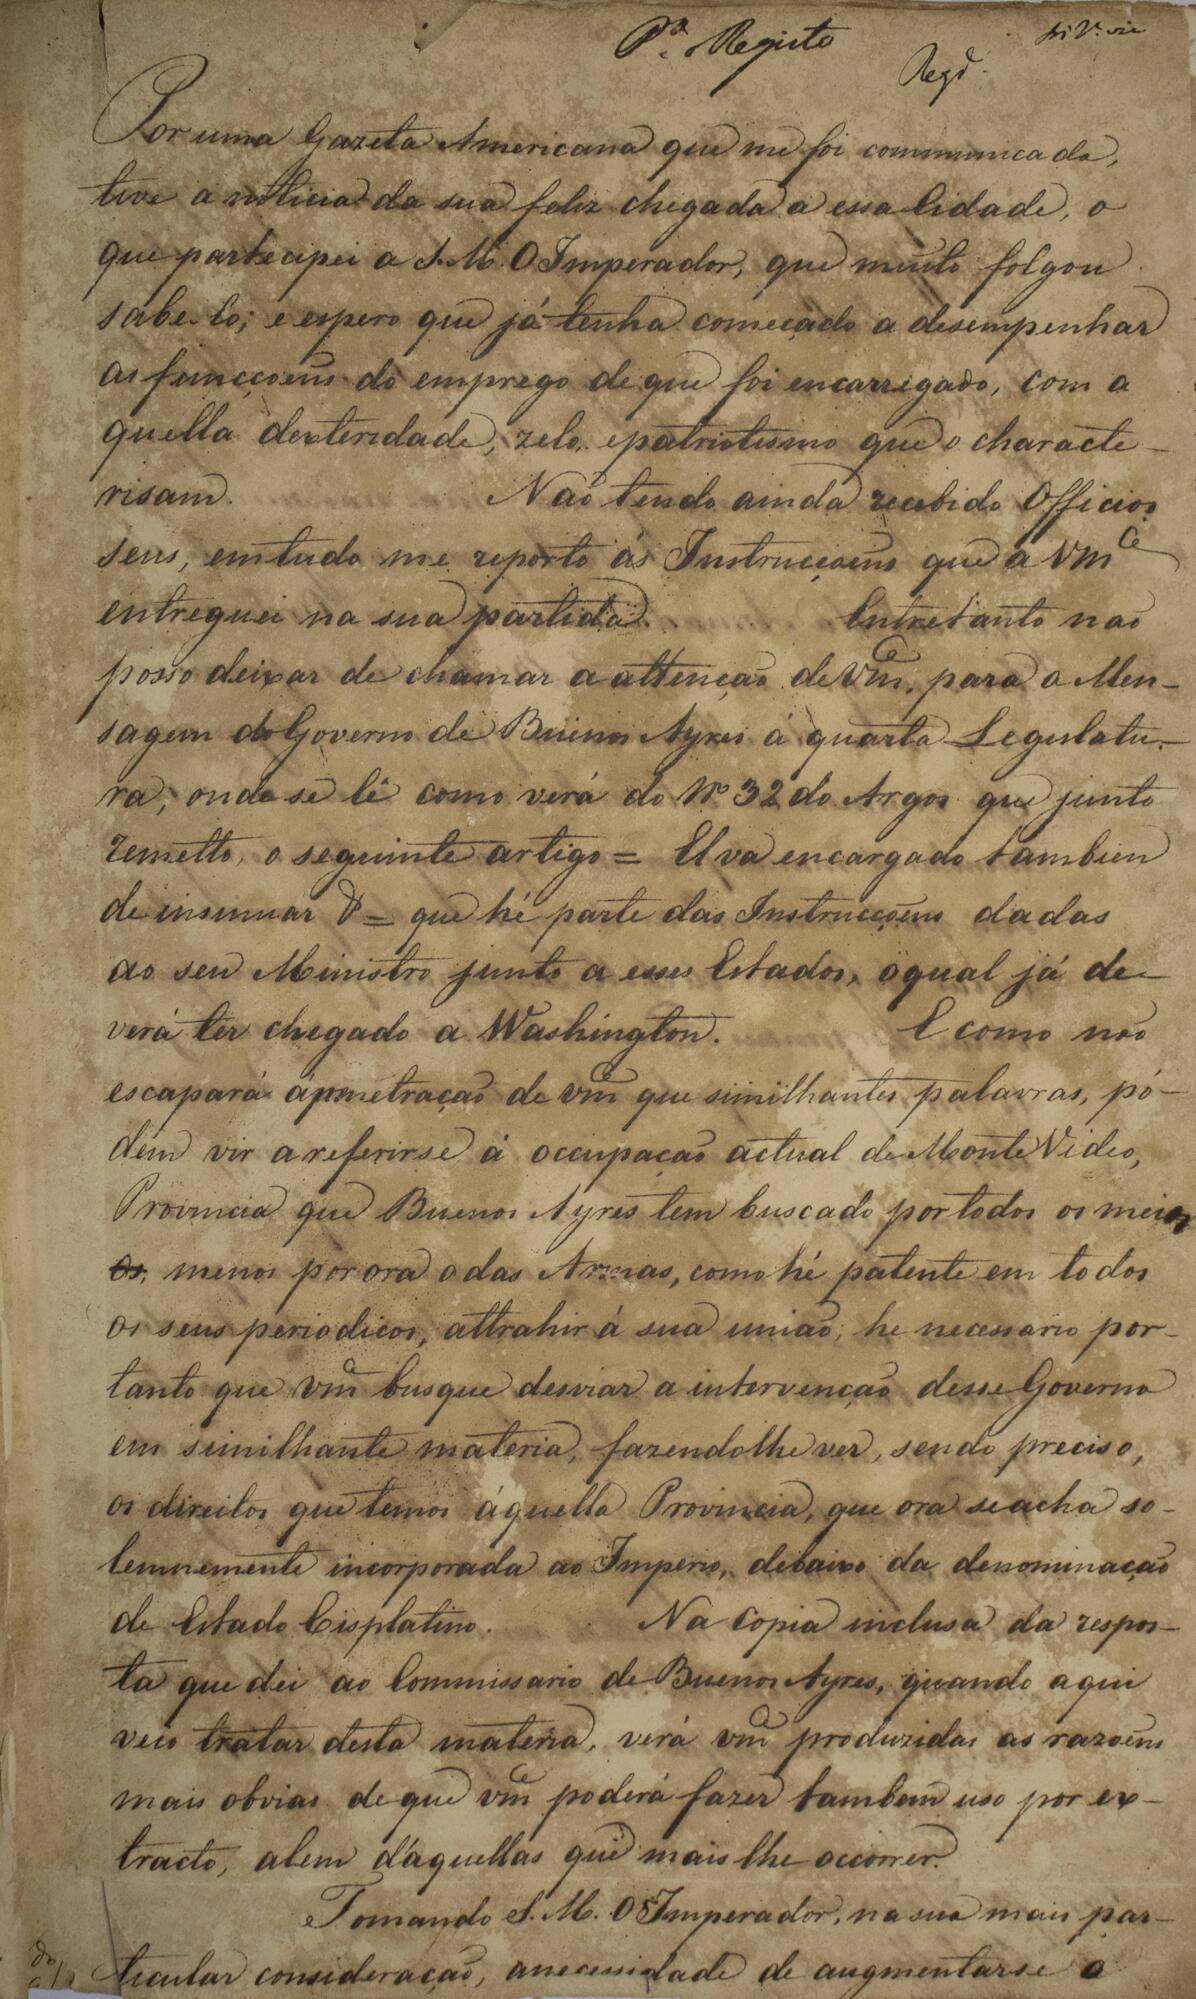 Pª. Registo
Regd.
Por uma Gazeta Americana que me foi communicada,
tive a noticia da sua feliz chegada a essa Cidade, o
que partecipei a S. M. O Imperador, que muito folgou
sabe-lo; e espero que já tenha começado a desempenhar
as funcçoens do emprego de que foi encarregado, com a
quella dexteridade, zelo, e patriotismo que o characte-
risam. Não tendo ainda recebido Officios
seus, em tudo me reporto ás Instrucçoens que a Vmce
entreguei na sua partida. Entretanto não
posso deixar de chamar a attenção de Vmce, para a Men-
sagem do Governo de Buenos Ayres á quarta Legislatu-
ra, onde se lê como verá do Nº 32 do Argos que junto
remetto, o seguinte artigo = El va encargado tambien
de insinuar & = que hé parte das Instrucçoens dadas
ao seu Ministro junto a esses Estados, o qual já de-
verá ter chegado a Washington. E como não
escapará á penetração de Vmce que similhantes palavras, pó-
dem vir a referirse á occupação actual de Monte Video,
Provincia que Buenos Ayres tem buscado por todos os meios
os, menos por ora o das Armas, como hé patente em todos
os seus periodicos, attrahir á sua união; he necessario por-
tanto que Vmce busque desviar a intervenção desse Governo
em similhante materia, fazendolhe ver, sendo preciso,
os direitos que temos áquella Provincia, que ora se acha so-
lemnemente incorporada ao Imperio, debaixo da denominação
de Estado Cisplatino. Na Copia inclusa da respos-
ta que dei ao Commissario de Buenos Ayres, quando aqui
veio tratar desta materia, verá Vmce produzidas as razoens
mais obvias de que Vmce poderá fazer tambem uso por ex-
tracto, alem d'aquellas que mais lhe occorrer.
Tomando S. M. O Imperador, na sua mais par-
ticular consideração, a necessidade de augmentarse o